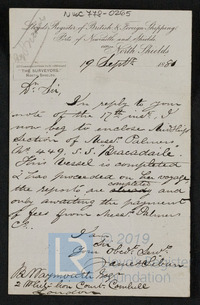 NWC 778-0265
Lloyd's Register of British & Foreign Shipping,
Port of Newcastle and Shields
North Shields
19 Septbr 1881
THE SURVEYORS
Dr Sir
In reply to your
note of the 17th inst. I
now beg to enclose Midship
Section of Messrs Palmers
No 449, S.S. Bracadaile.
This Vessel is completed
& has proceeded on her voyage
the reports are completed
only awaiting the payment
of fees from Messrs Palmers
Co.
I am
Sir
Your obedt Servt
B. Waymouth Esqr
2 White Lion Court, Cornhill
London